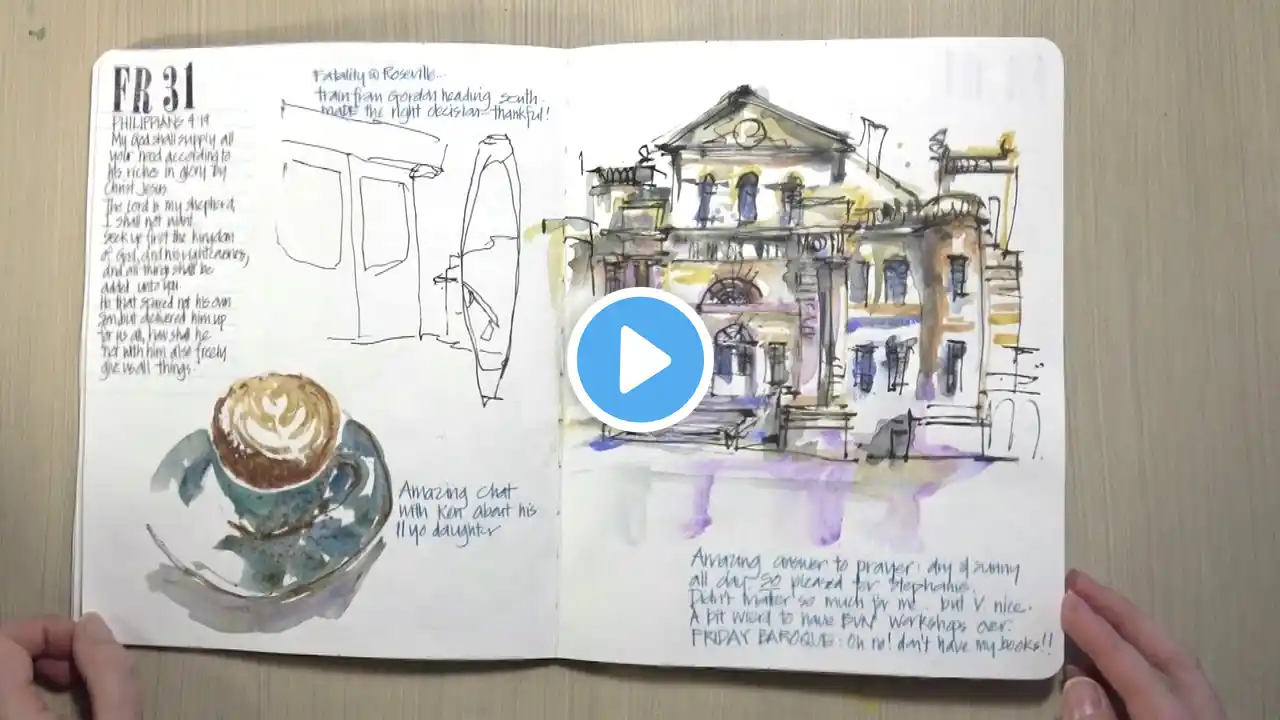 FR 31
PHILIPPIANS 4:19
My God shall supply all
your need according to
his riches in glory by
Christ Jesus
The Lord is my shepherd,
I shall not want.
Seek ye first the kingdom
of God, and his righteousness,
and all things shall be
added unto you.
He that spared not his own
Son but delivered him up
for us all, how shall he
not with him also freely
give us all things.
Fatality @ Roseville...
train from Gordon heading south.
made the right decision - thankful!
Amazing chat
with Ken about his
11yo daughter
Amazing answer to prayer: dry & sunny
all day. SO pleased for Stephanie.
Didn't matter so much for me.. but V. nice.
A bit weird to have workshops over.
FRIDAY BAROQUE: Oh no! don't have my books!!